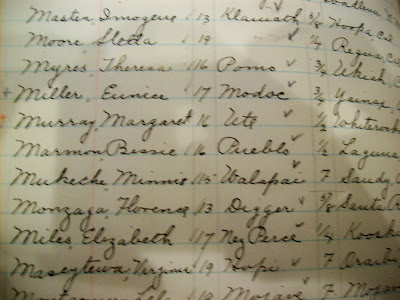 Master, Imogene / 13 Klamath 5/8 Hoopa Cal
Moore, Sletta / 19 " 1/4 Requa, Ca
Myres, Theresa / 16 Pomo 3/4 Ukiah, C
+ Miller, Eunice / 17 Modoc 3/4 Yainax,
Murray, Margaret 16 Ute 1/2 Whiterock
Marmon, Bessie / 16 Pueblo 1/2 Laguna
Mukeche, Minnie / 15 Walapai F Sandy,
Monzaga, Florence / 13 Digger 5/8 Santa
Miles, Elizabeth / 17 Nez Perce 1/4 Koosk
Maseytewa, Virginia 19 Hopi F Oraibi
19 Mojave F Mojav